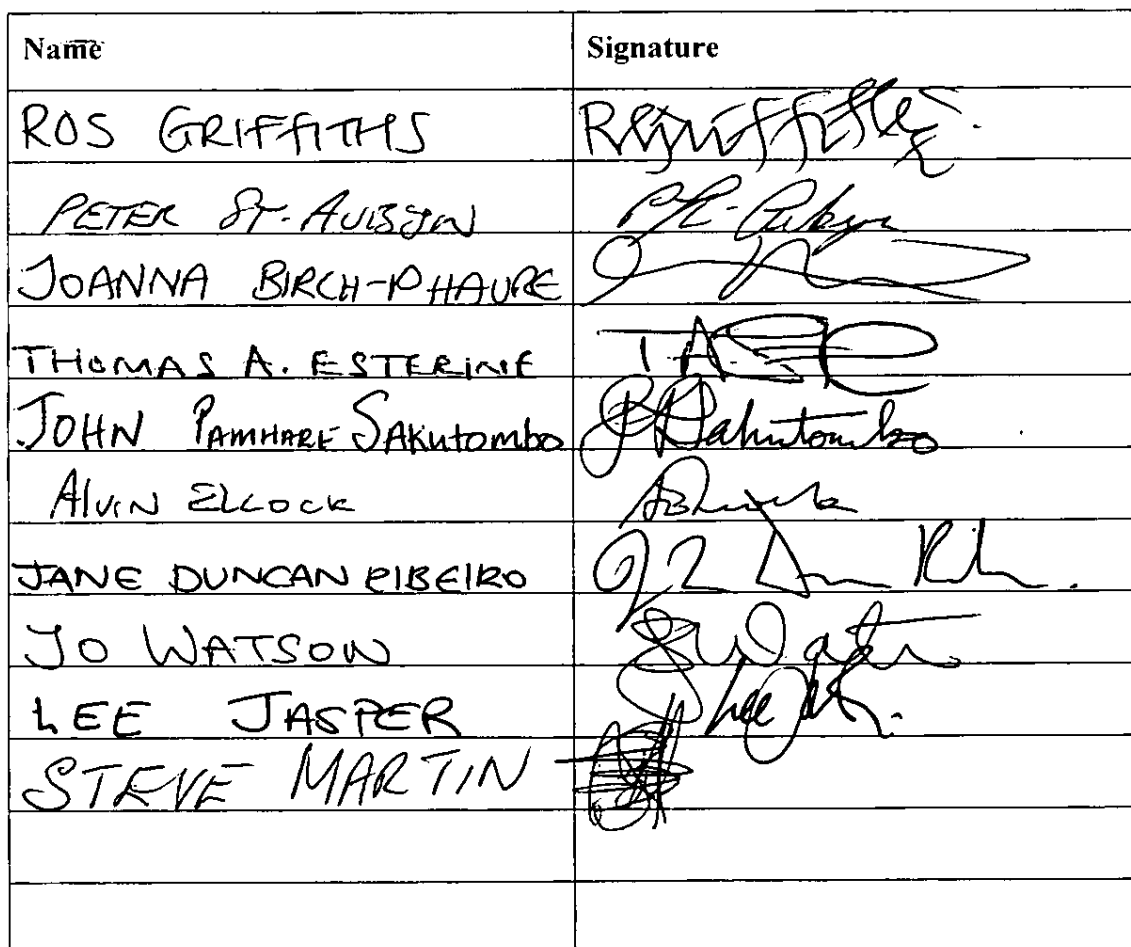 Name Signature
ROS GRIFFITHS RGriffiths.
PETER ST. AUBYN
JOANNA BIRCH-PHAURE
THOMAS A. ESTERINE TAE
JOHN PAMHARE SAKUTOMBO J P Sakutombo
Alvin ELCOCK
JANE DUNCAN RIBEIRO
JO WATSON J Watson
LEE JASPER Lee
STEVE MARTIN